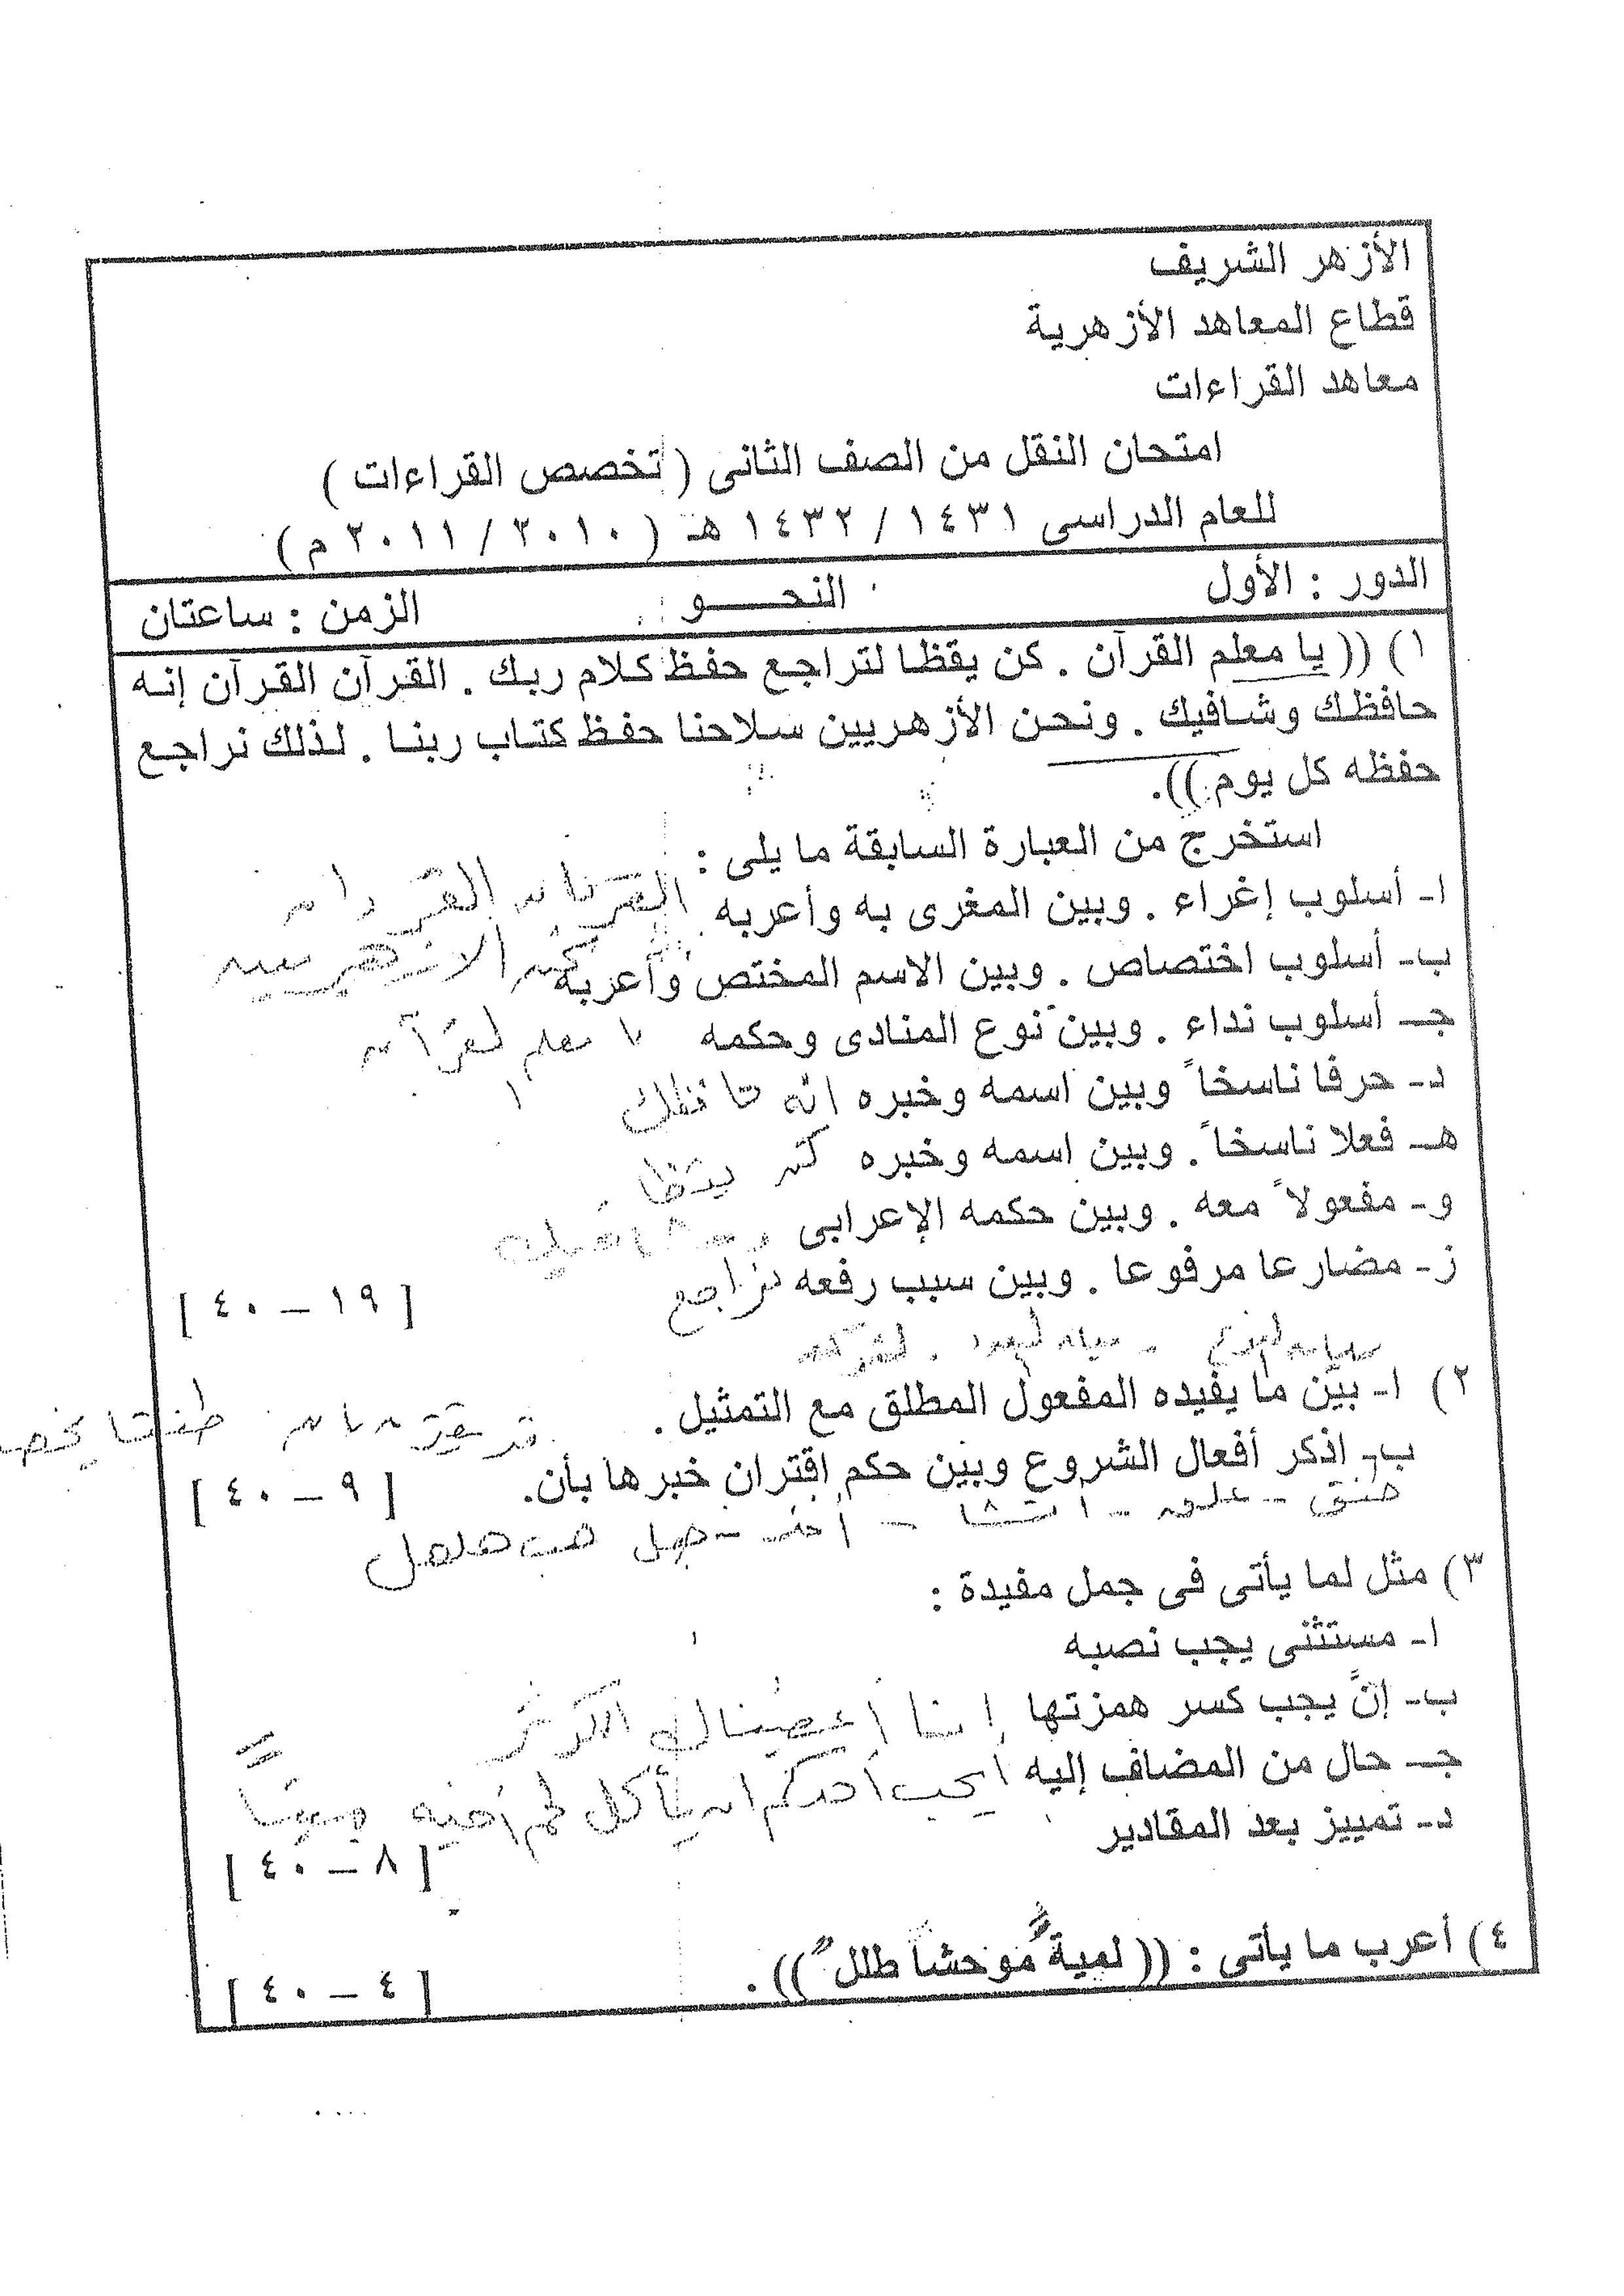 الأزهر الشريف
قطاع المعاهد الأزهرية
معاهد القراءات
امتحان النقل من الصف الثانى ( تخصص القراءات )
للعام الدراسى ١٤٣١ / ١٤٣٢ هـ ( ٢٠١٠ / ٢٠١١ م )
الدور : الأول النحـــو الزمن : ساعتان
١) (( يا معلم القرآن . كن يقظا لتراجع حفظ كلام ربك . القرآن القرآن إنه
حافظك وشافيك . ونحن الأزهريين سلاحنا حفظ كتاب ربنا . لذلك نراجع
حفظه كل يوم )).
استخرج من العبارة السابقة ما يلى :
ا- أسلوب إغراء . وبين المغرى به وأعربه القرآن القرآن
ب- أسلوب اختصاص . وبين الاسم المختص وأعربه نحن الازهريين
جـ- أسلوب نداء . وبين نوع المنادى وحكمه يا معلم القرآن
د- حرفا ناسخاً وبين اسمه وخبره انه حافظك
هـ- فعلا ناسخاً . وبين اسمه وخبره كن يقظا
و- مفعولاً معه . وبين حكمه الإعرابى
ز- مضارعا مرفوعا . وبين سبب رفعه نراجع
[ ١٩ – ٤٠ ]
بيان النوع - بيان العدد .
٢) ا- بيّن ما يفيده المفعول المطلق مع التمثيل .
ب- اذكر أفعال الشروع وبين حكم اقتران خبرها بأن.
[ ٩ – ٤٠ ]
طفق - علق - أنشأ - أخذ - جعل هب هلهل
٣) مثل لما يأتى فى جمل مفيدة :
ا- مستثنى يجب نصبه
ب- إنّ يجب كسر همزتها إنا أعطيناك الكوثر
جـ- حال من المضاف إليه أيحب أحدكم ان يأكل لحم أخيه ميتاً
د- تمييز بعد المقادير
[ ٨ – ٤٠ ]
٤) أعرب ما يأتى : (( لميةَ موحشاً طللٌ )) .
[ ٤ – ٤٠ ]